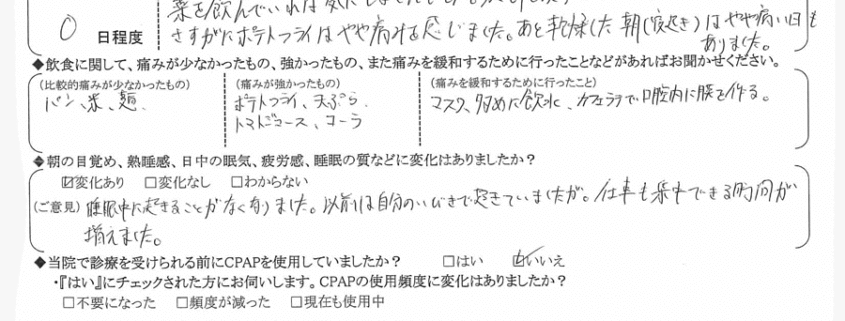 薬を飲んでいれば気に
0 日程度
さすがにポテトフライはやや痛みを感じました。あと乾燥した朝(寝起き)はやや痛い日も
ありました。
◆飲食に関して、痛みが少なかったもの、強かったもの、また痛みを緩和するために行ったことなどがあればお聞かせください。
(比較的痛みが少なかったもの) (痛みが強かったもの) (痛みを緩和するために行ったこと)
パン、米、麺、 ポテトフライ、天ぷら、 マスク、多めに飲水、カフェラテで口腔内に膜を作る。
トマトジュース、コーラ
◆朝の目覚め、熟睡感、日中の眠気、疲労感、睡眠の質などに変化はありましたか?
☑変化あり □変化なし □わからない
(ご意見) 睡眠中に起きることがなくなりました。以前は自分のいびきで起きていましたが。仕事も集中できる時間が
増えました。
◆当院で診療を受けられる前にCPAPを使用していましたか? □はい ☑いいえ
・『はい』にチェックされた方にお伺いします。CPAPの使用頻度に変化はありましたか?
□不要になった □頻度が減った □現在も使用中